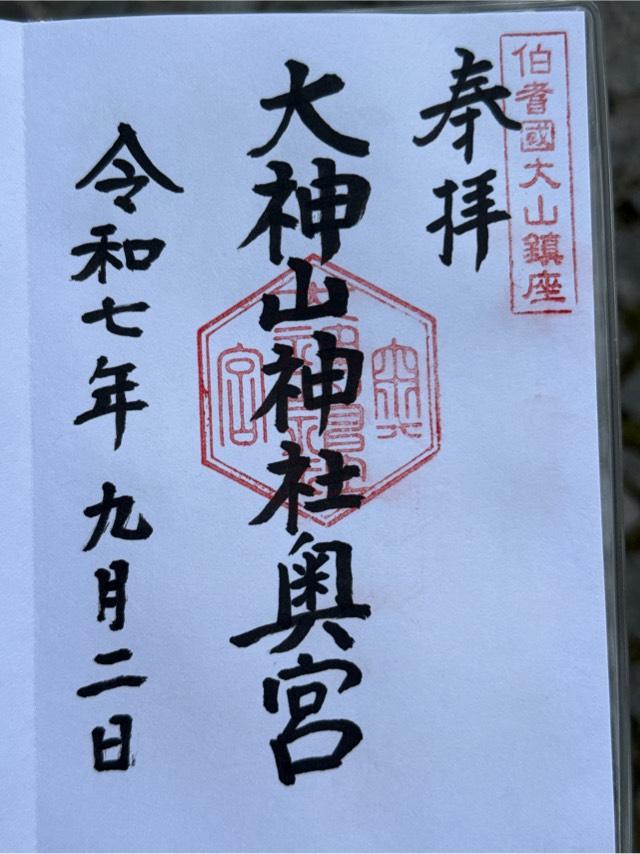 伯耆國大山鎮座
奉拝
大神山神社奥宮
令和七年九月二日